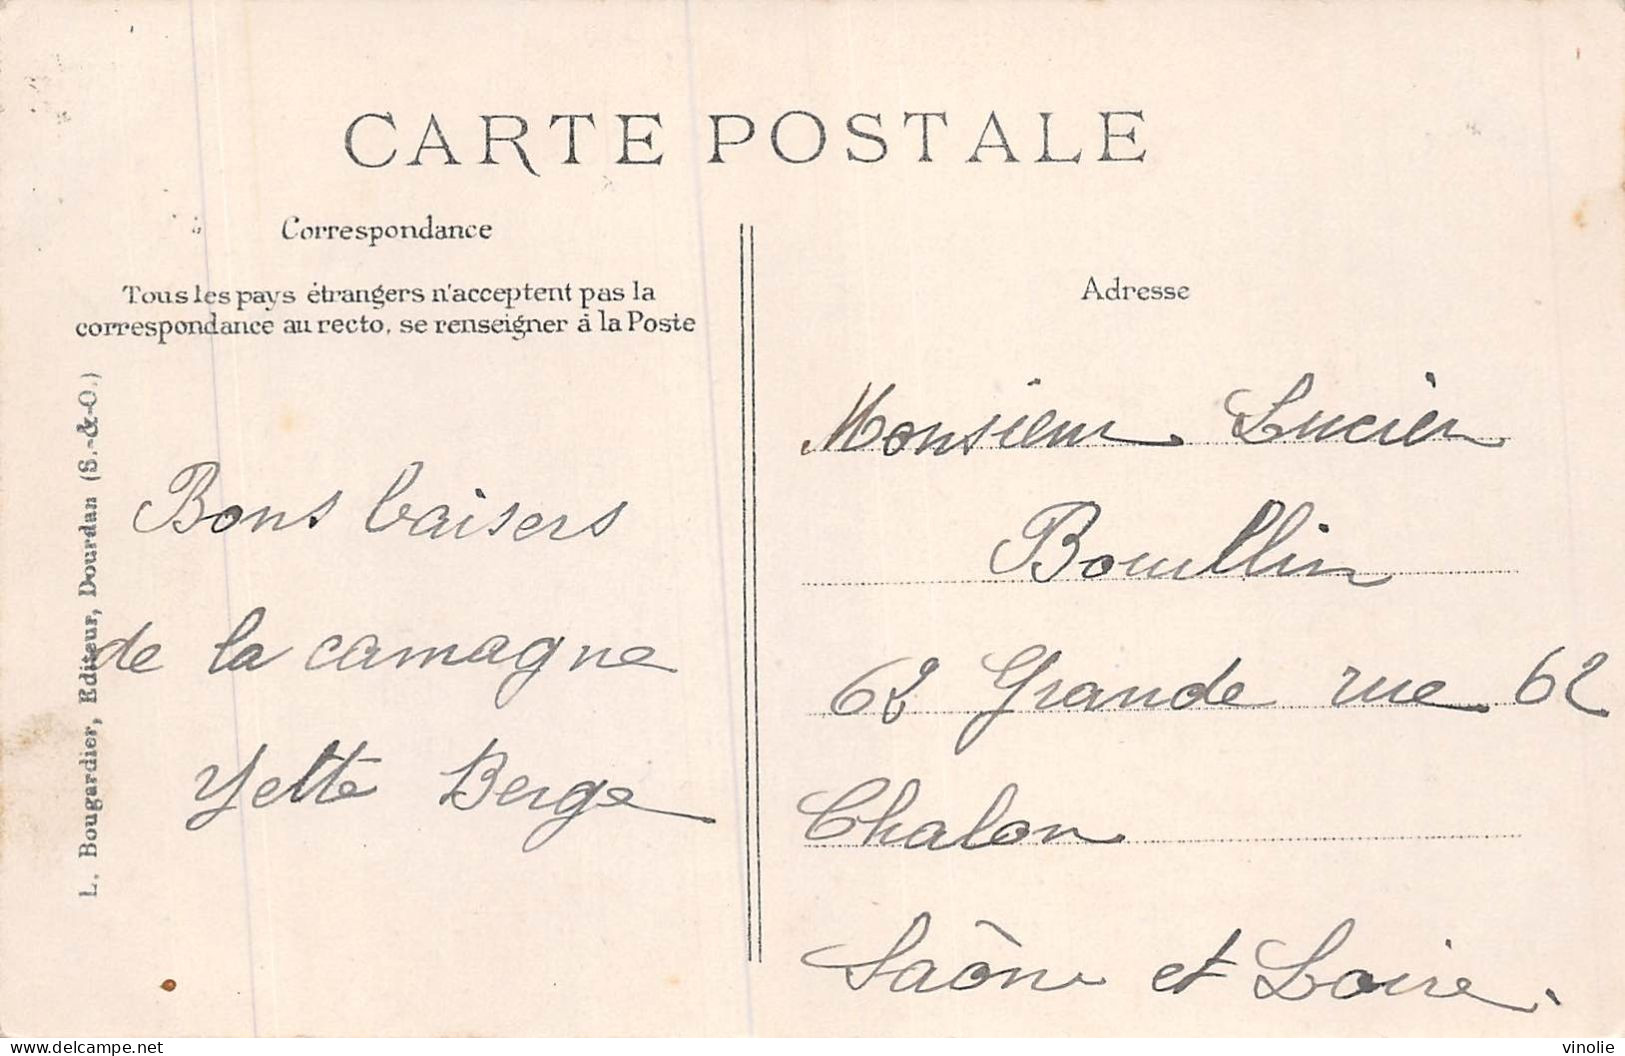 CARTE POSTALE
Correspondance
Tous les pays étrangers n'acceptent pas la
correspondance au recto, se renseigner à la Poste
L. Bougardier, Editeur, Dourdan (S.-&-O.)
Bons baisers
de la camagne
Yette Berge
Adresse
Monsieur Lucien
Boullin
62 Grande rue 62
Chalon
Saône et Loire.
delcampe.net
vinolie